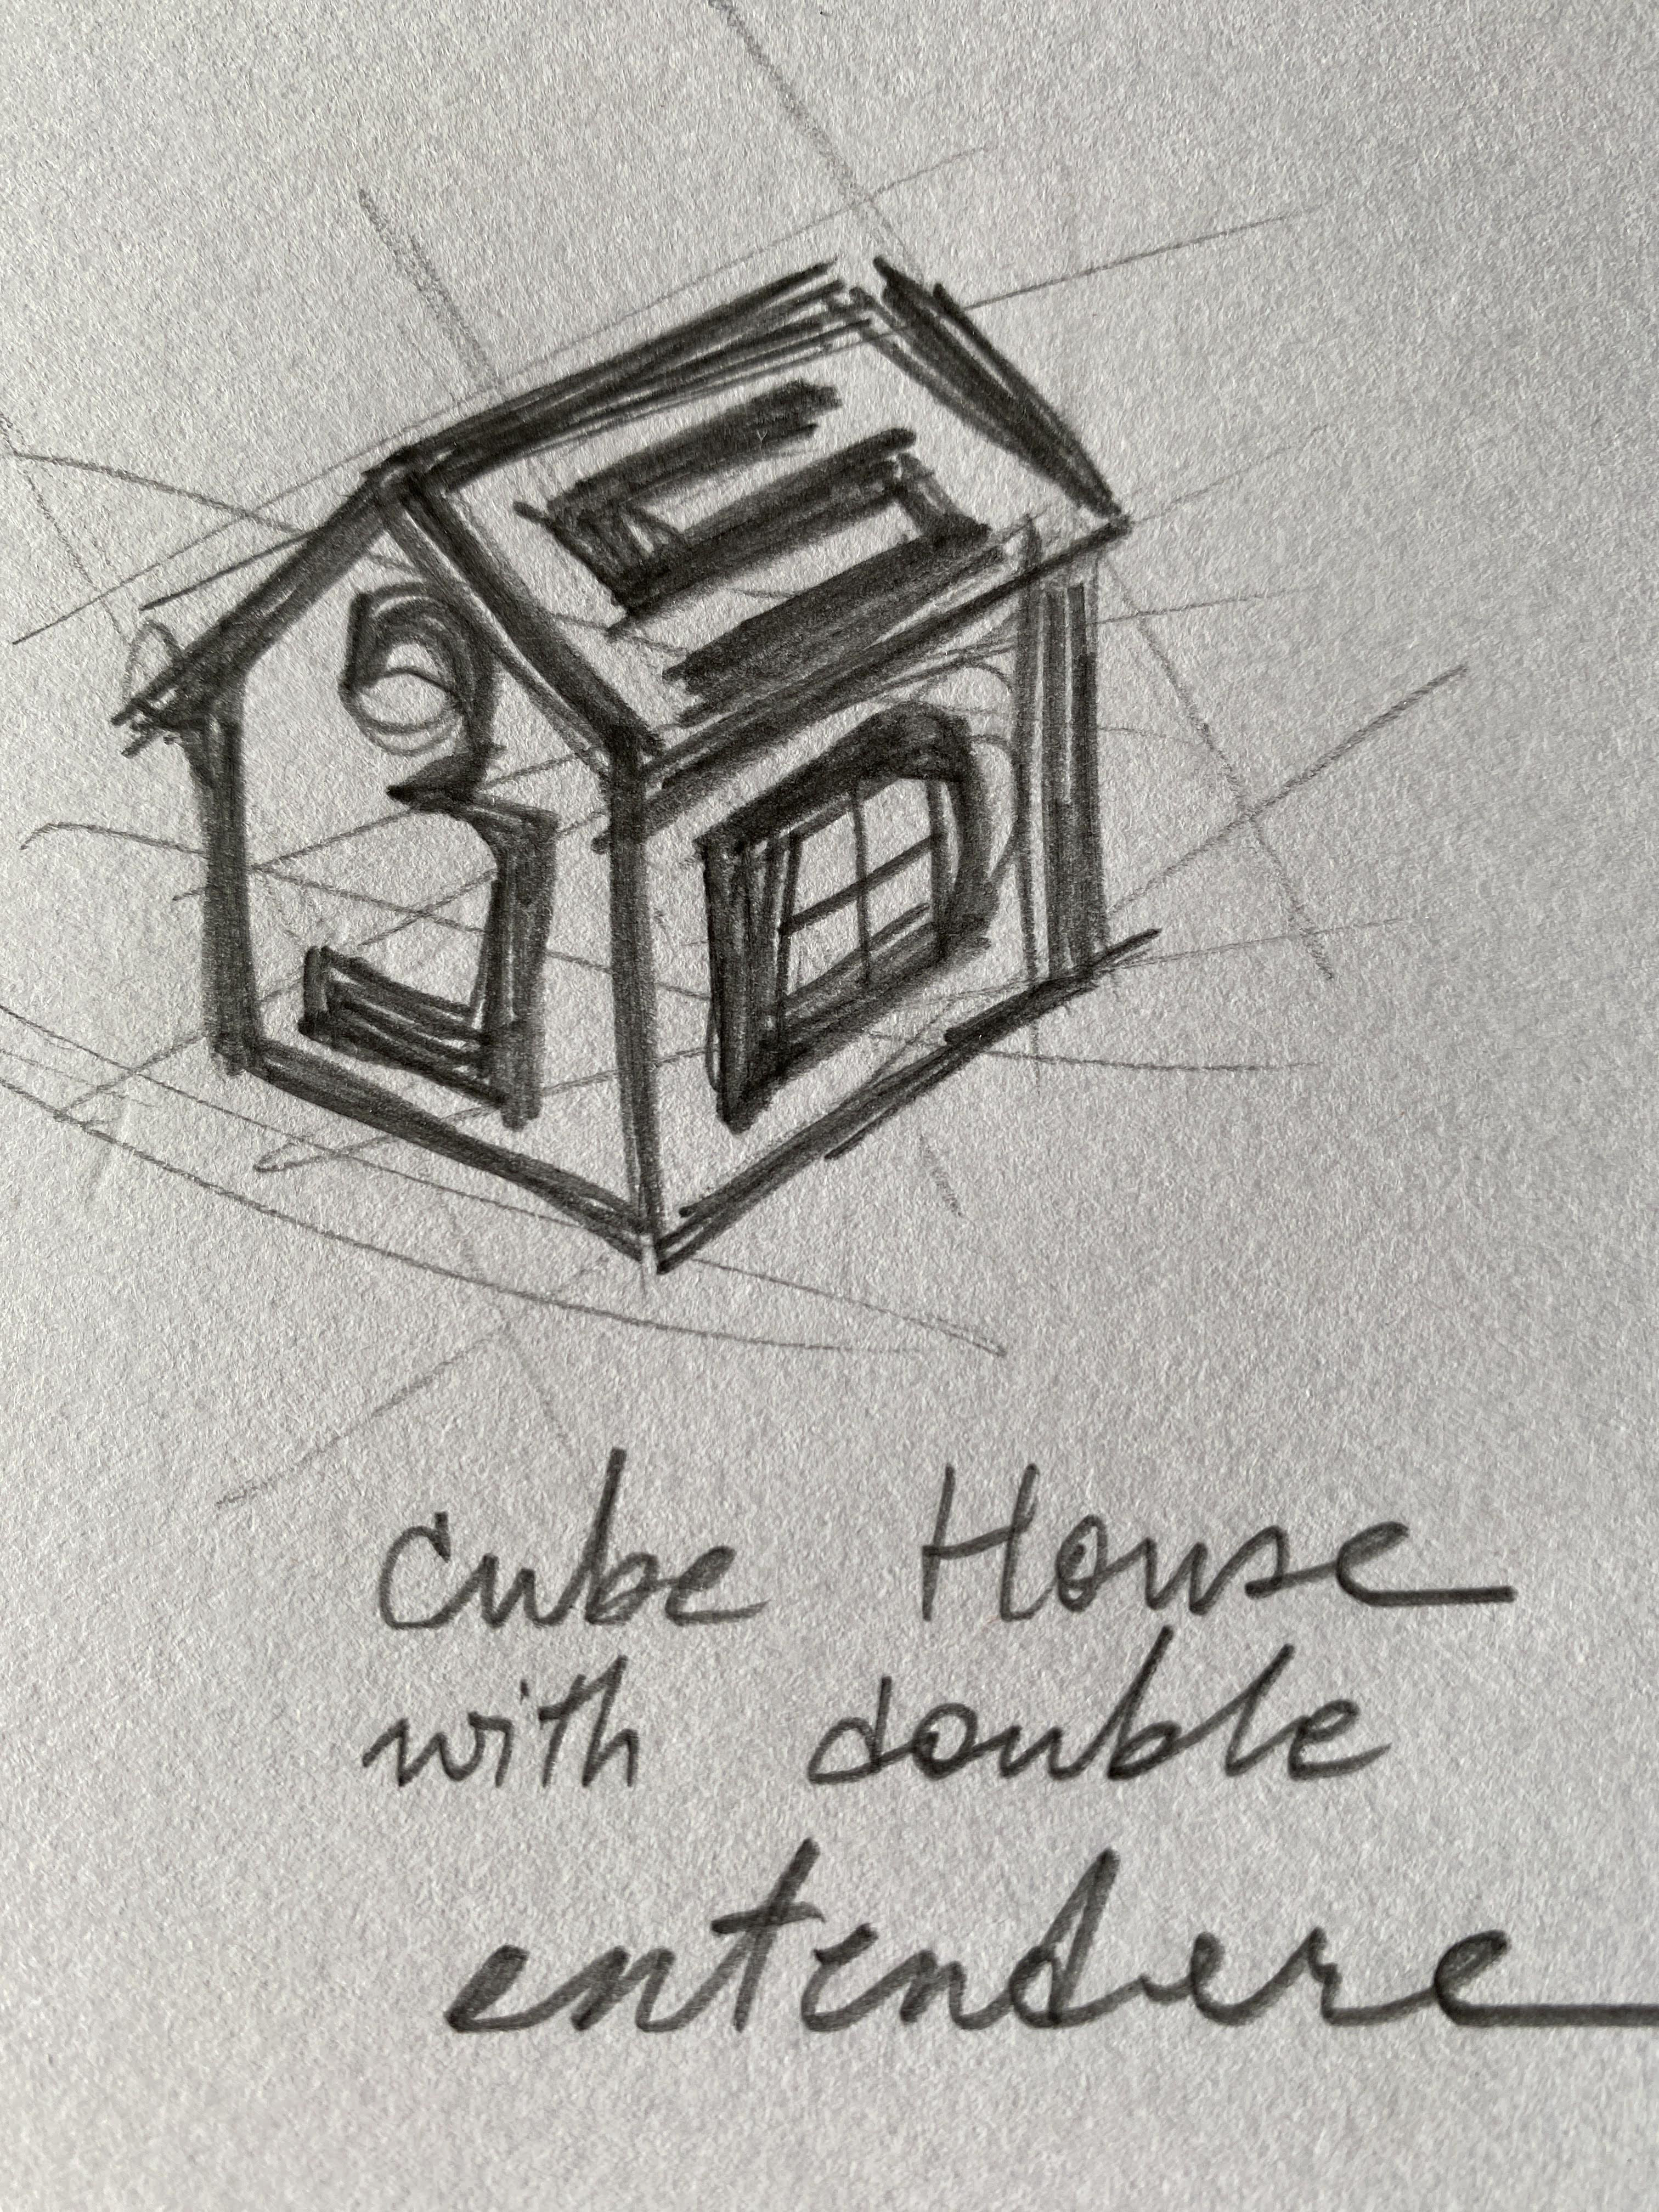 3 D
Cube House
with double
entendere